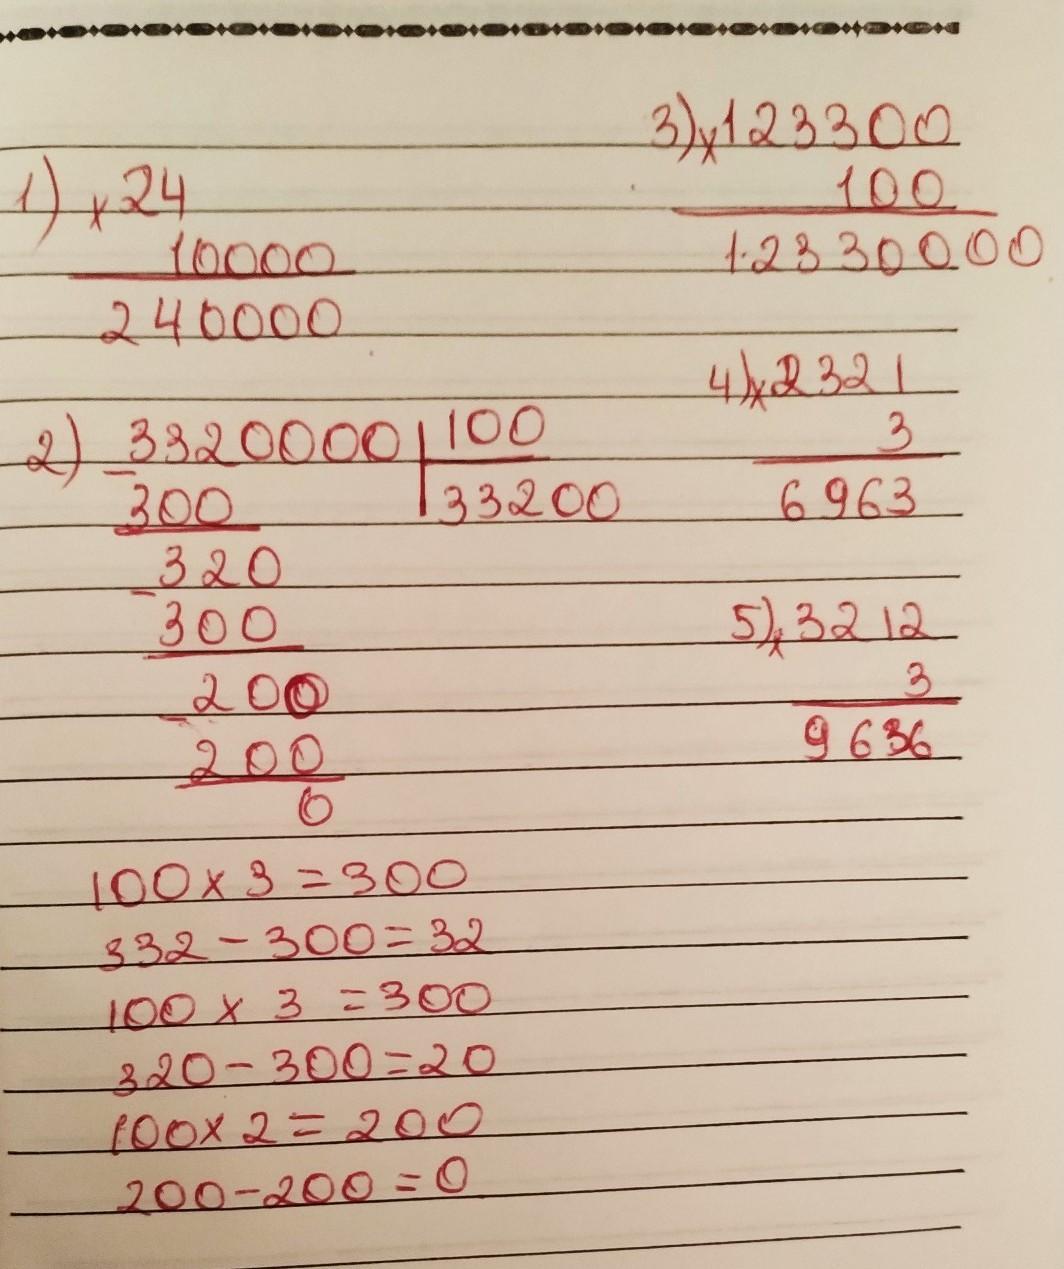 1) x 24
10000
240000
2) - 3320000 | 100
300 33200
320
- 300
200
- 200
0
100 x 3 = 300
332 - 300 = 32
100 x 3 = 300
320 - 300 = 20
100 x 2 = 200
200 - 200 = 0
3) x 123300
100
12330000
4) x 2321
3
6963
5) x 3212
3
9636